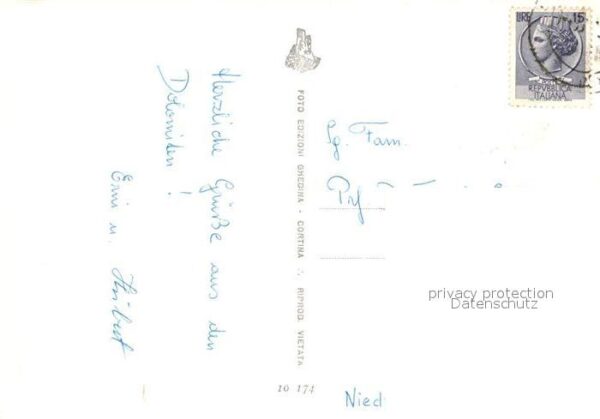 Herzliche Grüße aus den
Dolomiten !
Erni u. Heribert
FOTO EDIZIONI GHEDINA - CORTINA ∴ RIPROD. VIETATA
10 174
LIRE 15
REPVBBLICA
ITALIANA
Fam.
privacy protection
Datenschutz
Nied